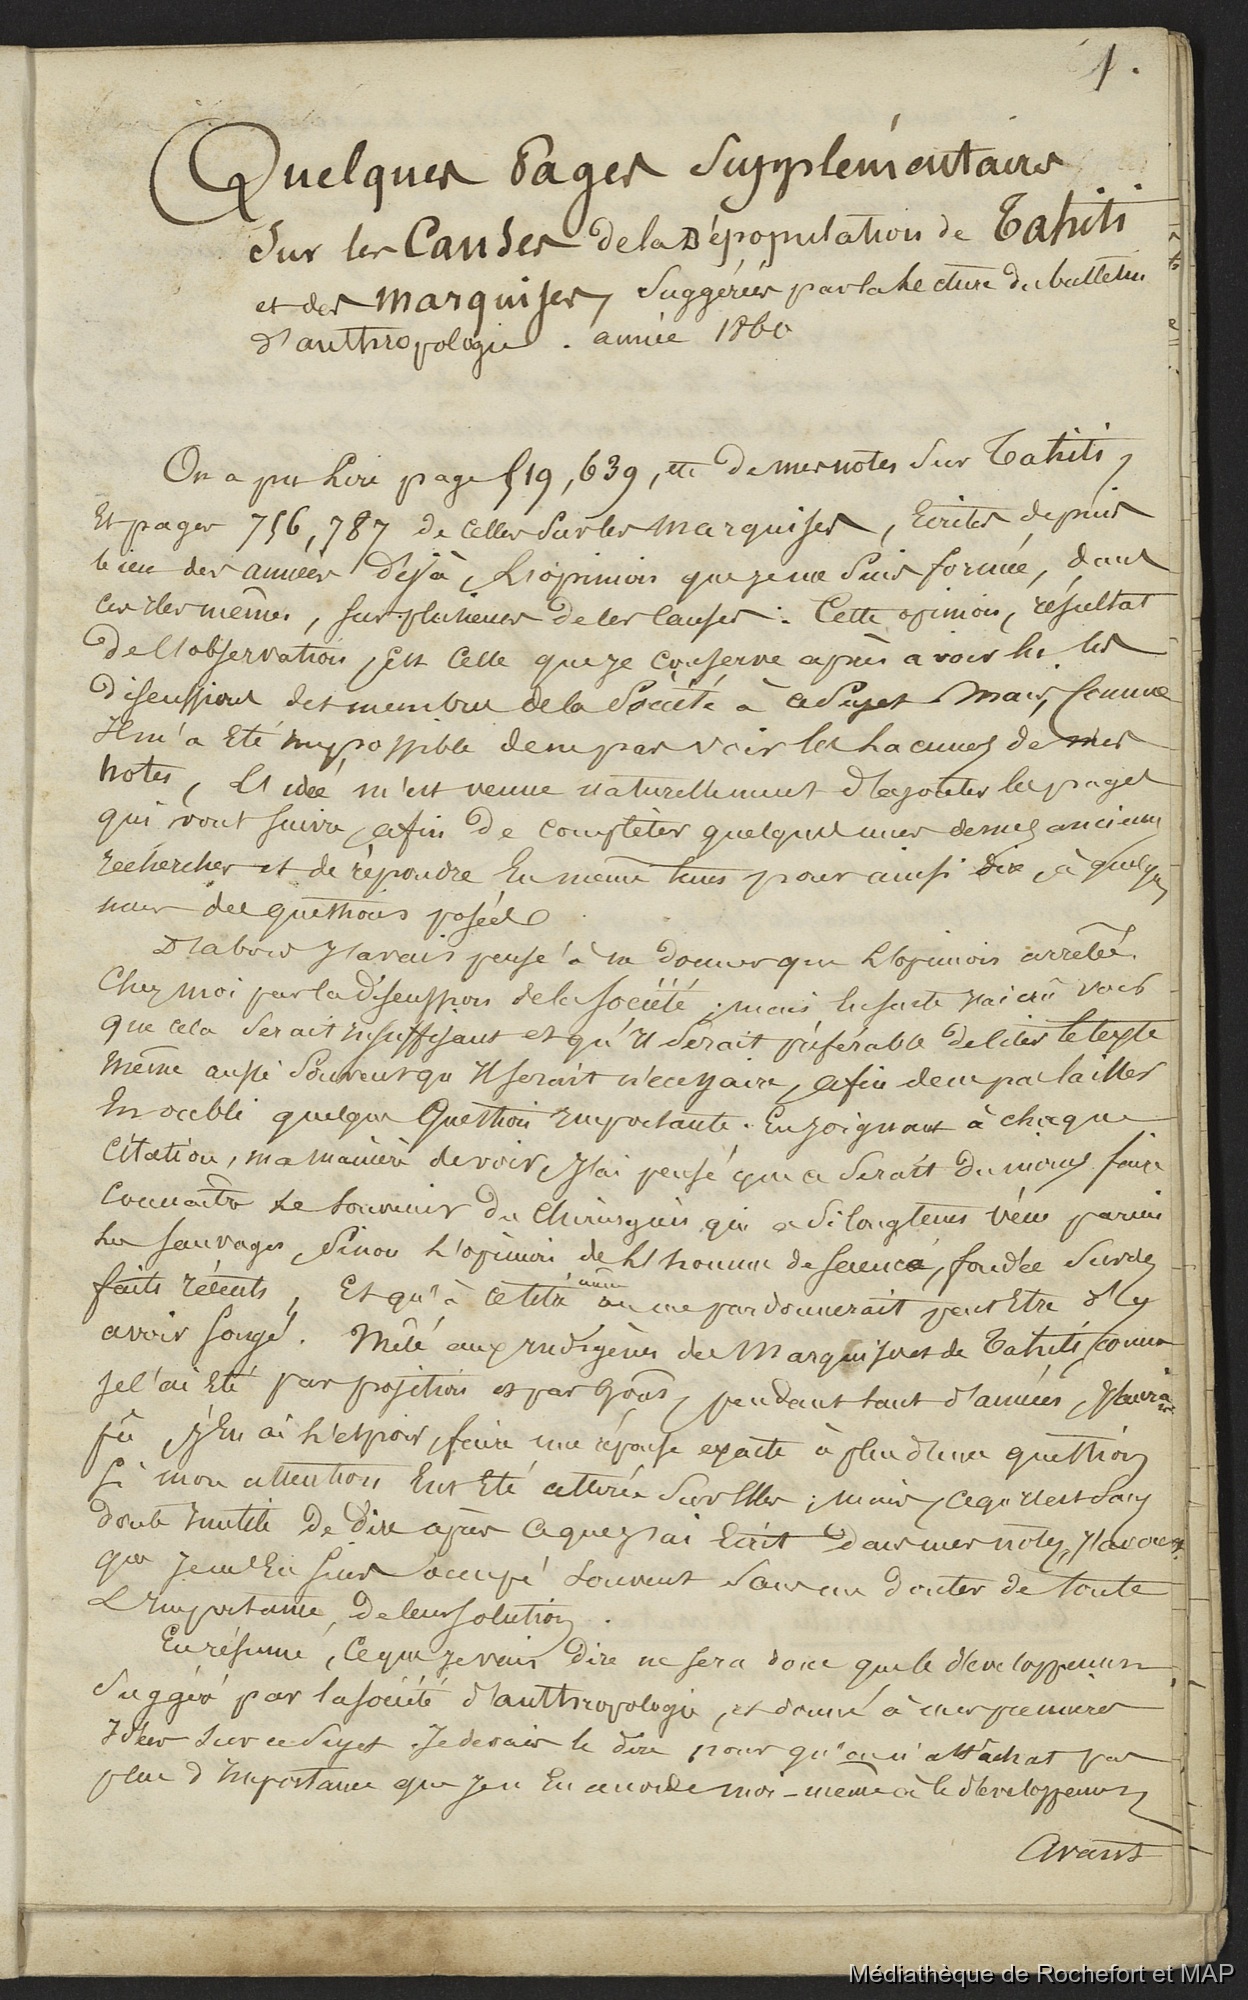 1.
Quelques Pages Supplémentaires
Sur les Causes de la Dépopulation de Tahiti
et des Marquises, Suggérées par la Lecture du bulletin
d'anthropologie. année 1860
On a pu Lire page 519, 639, etc De mes notes Sur Tahiti,
Et pages 756, 787 de celles Sur les Marquises, Ecrites depuis
bien des années déjà, L'opinion que je me Suis formée, dans
ces iles mêmes, sur plusieurs de les Causes. Cette opinion, résultat
de l'observation, est Celle que je conserve après avoir lu les
discussions des membres de la Société à ce Sujet. Mais, Comme
Il m'a Eté impossible de ne pas voir les Lacunes de mes
notes, L'idée m'est venue naturellement d'ajouter les pages
qui vont suivre, afin de compléter quelques unes de mes anciennes
recherches et de répondre En même tems pour ainsi dire, à quelques
unes des questions posées.
D'abord J'avais pensé à ne donner que L'opinion arrêtée
Chez moi par la discussion de la société; mais ensuite J'ai crû voir
que cela Serait insuffisant et qu'Il Serait préférable de citer le texte
même aussi Souvent qu'Il serait nécessaire, afin de ne pas laisser
En oubli quelque Question importante. En joignant à chaque
Citation, ma manière de voir, J'ai pensé que ce Serait du moins faire
Connaître Le Souvenir du Chirurgien qui a Si longtems vécu parmi
Les Sauvages, Sinon L'opinion de L'homme de Science, fondée Sur des
faits récents, Et qu'à ce titre on me pardonnerait peut Etre d'y
avoir songé. Mêlé aux Indigènes des Marquises et de Tahiti, comme
Je l'ai Eté par position et par Goût, pendant tant d'années, J'aurais
pû, J'En ai L'espoir, faire une réponse exacte à plus d'une question
Si mon attention Eut Eté attirée Sur Elles; mais, ce qu'il est Sans
doute Inutile De dire après ce que J'ai Ecrit Dans mes notes, J'avoue
que Je m'En Suis occupé Souvent Sans me douter de toute
L'importance de leur solution.
En résumé, Ce que je vais Dire ne sera donc que le développement
Suggéré par la société d'anthropologie, et donné à mes premières
Idées Sur ce Sujet. Je devais le dire pour qu'on n'attachat pas
plus d'Importance que Je n'En accorde moi-même à le développement
Avant
Médiathèque de Rochefort et MAP